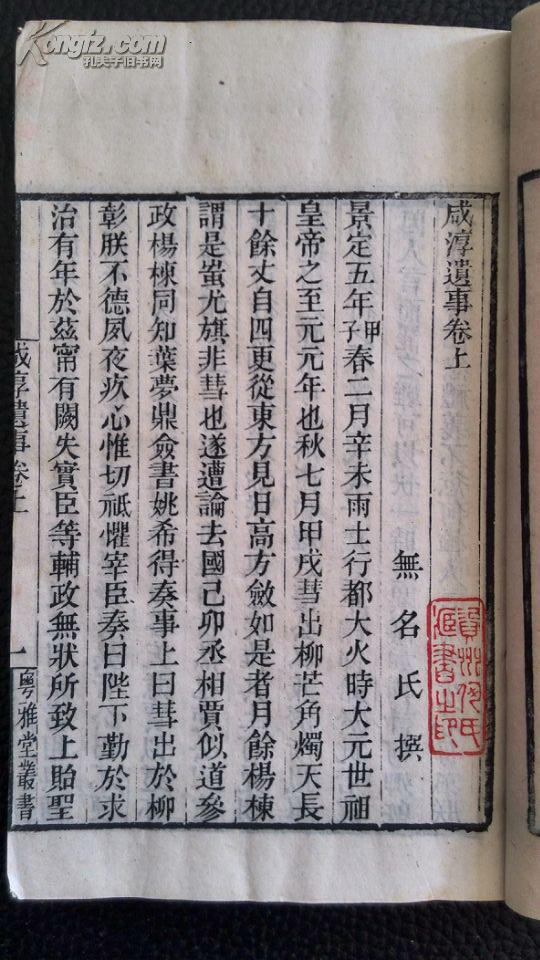 Kongfz.com
孔夫子旧书网
咸淳遺事卷上
無名氏撰
景定五年甲子春二月辛未雨土行都大火時大元世祖
皇帝之至元元年也秋七月甲戌彗出柳芒角燭天長
十餘丈自四更從東方見日高方斂如是者月餘楊棟
謂是蚩尤旗非彗也遂遭論去國己卯丞相賈似道參
政楊棟同知葉夢鼎僉書姚希得奏事上曰彗出於柳
彰朕不德夙夜疚心惟切祗懼宰臣奏曰陛下勤於求
治有年於茲甯有闕失實臣等輔政無狀所致上貽聖
咸淳遺事卷上
一
粵雅堂叢書